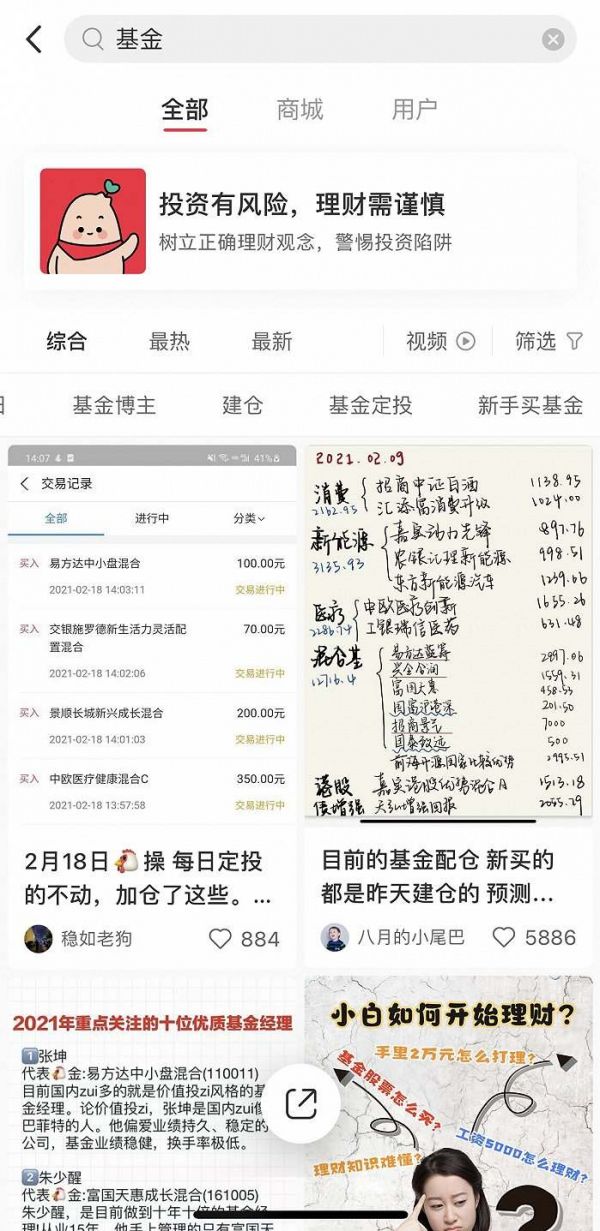 基金
全部 商城 用户
投资有风险，理财需谨慎
树立正确理财观念，警惕投资陷阱
综合 最热 最新 视频 筛选
日 基金博主 建仓 基金定投 新手买基金
14:07 41%
交易记录
全部 进行中 分类
买入 易方达中小盘混合 100.00元
2021-02-18 14:03:11 交易进行中
买入 交银施罗德新生活力灵活配 70.00元
置混合
2021-02-18 14:02:06 交易进行中
买入 景顺长城新兴成长混合 200.00元
2021-02-18 14:01:03 交易进行中
买入 中欧医疗健康混合C 350.00元
2021-02-18 13:57:58 交易进行中
2月18日🐔操 每日定投
的不动，加仓了这些。...
稳如老狗 884
2021.02.09
消费 招商中证白酒 1138.95
2162.95 汇添富消费升级 1024.00
新能源 嘉实动力先锋 897.76
3135.93 农银汇理新能源 998.51
东方新能源汽车 1239.66
医疗 中欧医疗创新 1655.26
2286.74 工银瑞信医药 631.48
混合基 易方达蓝筹 2897.06
12716.4 兴全合润 1559.31
富国天惠 458.53
201.50
招商景气 7000
国泰致远 500
前海开源国家比较优势 2995.51
港股 嘉实港股优势混合A 1513.18
债增强 天弘增强回报 2055.29
目前的基金配仓 新买的
都是昨天建仓的 预测...
八月的小尾巴 5886
2021年重点关注的十位优质基金经理
1张坤
代表🐔金:易方达中小盘混合(110011)
目前国内zui多的就是价值投zi风格的基
金经理。论价值投zi，张坤是国内zui像
巴菲特的人。他偏爱业绩持久、稳定的
公司，基金业绩稳健，换手率极低。
2朱少醒
代表🐔金:富国天惠成长混合(161005)
朱少醒，是目前做到十年十倍的基金经
理!从业15年，他手上管理的只有富国天
小白如何开始理财？
手里2万元怎么打理？
基金股票怎么买？
工资5000怎么理财？
理财知识难懂？
?